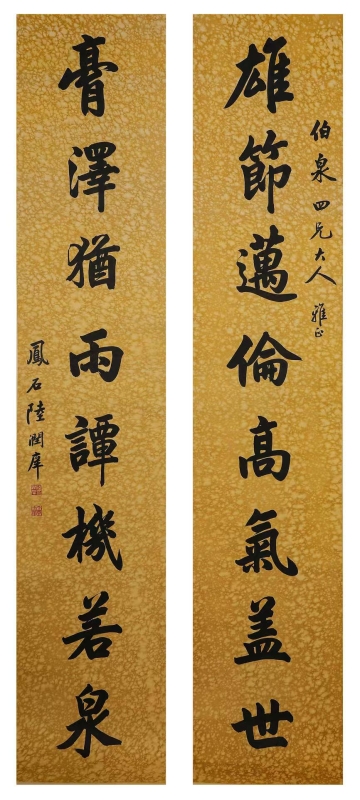 伯泉四兄大人雅正
雄節邁倫高氣蓋世
膏澤猶雨譚機若泉
鳳石陸潤庠